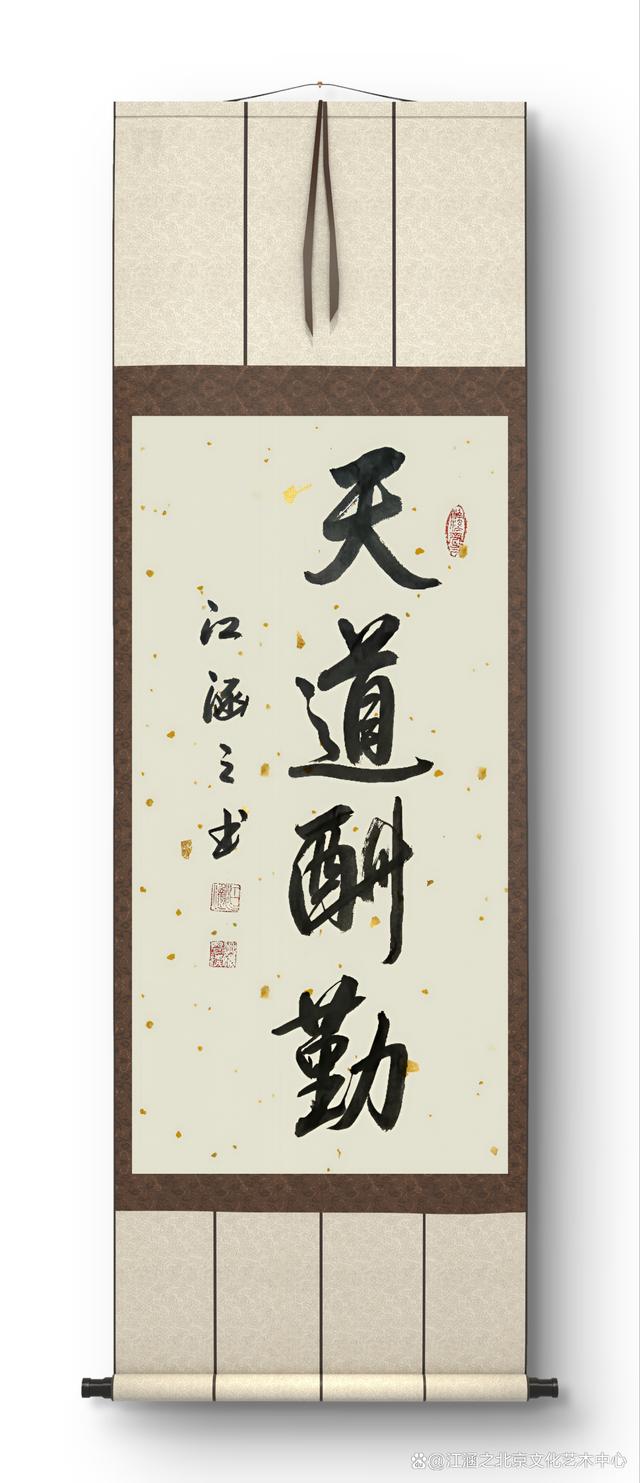 天道酬勤
江涵之书
@江涵之北京文化艺术中心